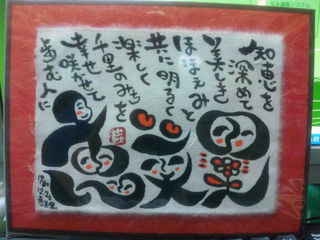 知恵を
深めて
美しき
ほほえみと
共に明るく
楽しく
千里のみちを
幸せ
咲かせて
歩む人に